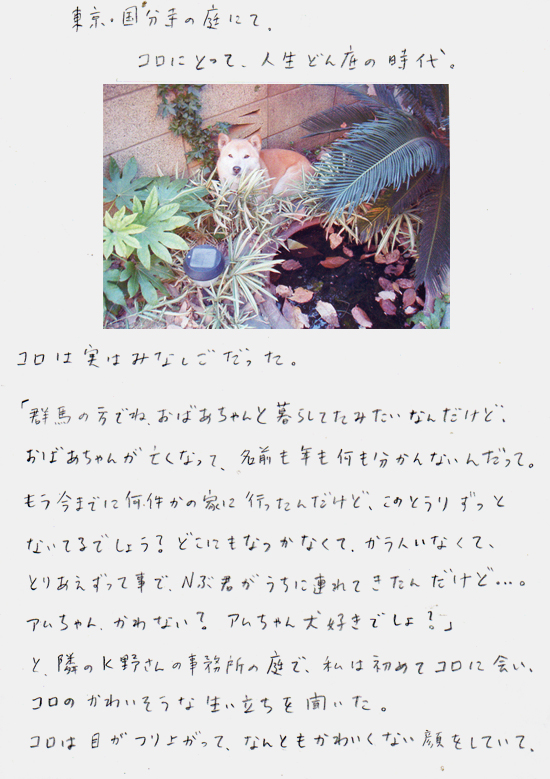 東京・国分寺の庭にて。
コロにとって、人生どん底の時代。
コロは実はみなしごだった。
「群馬の方でね、おばあちゃんと暮らしてたみたいなんだけど、
おばあちゃんが亡くなって、名前も年も何も分かんないんだって。
もう今までに何件かの家に行ったんだけど、このとうりずっと
ないてるでしょう？どこにもなつかなくて、がう人いなくて、
とりあえずって事で、Nぶ君がうちに連れてきたんだけど…。
アムちゃん、かわない？アムちゃん犬好きでしょ？」
と、隣のK野さんの事務所の庭で、私は初めてコロに会い、
コロのかわいそうな生い立ちを聞いた。
コロは目がつり上がって、なんともかわいくない顔をしていて、